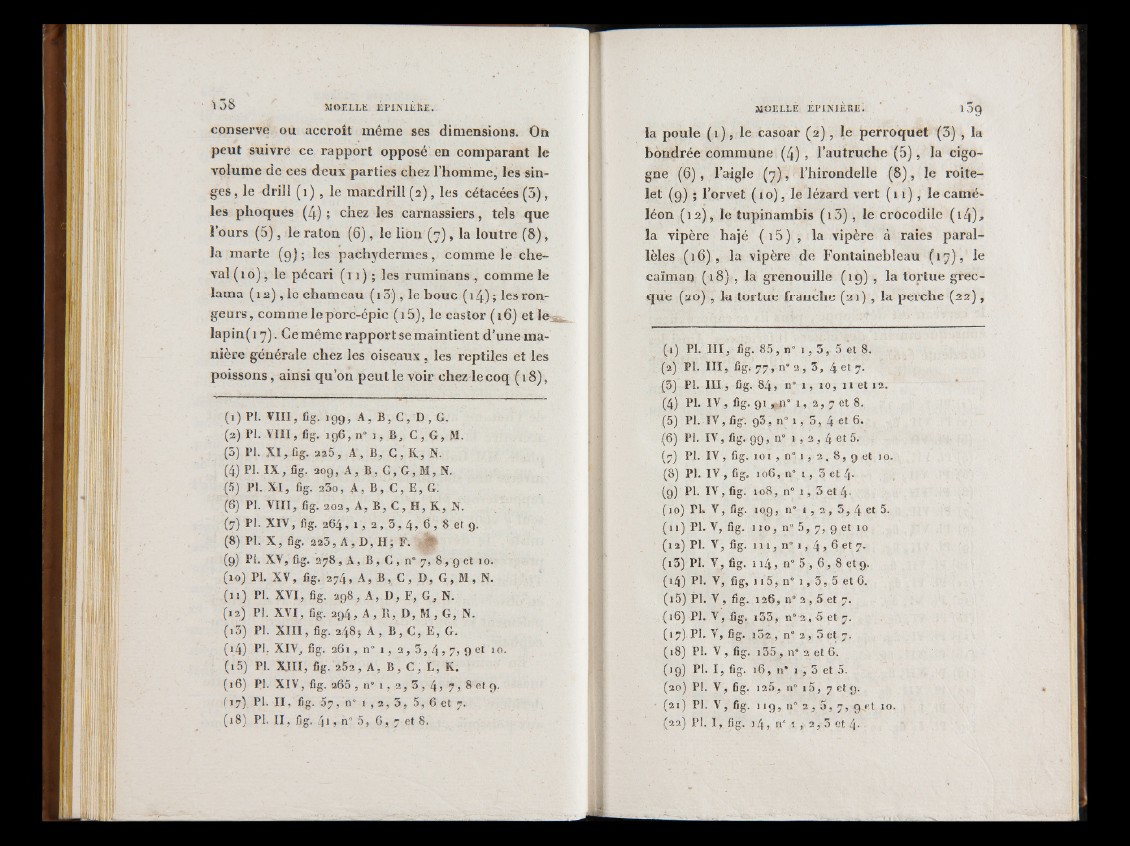 138 MOELLE ÉPINIÈRE.
conserve ou accroît même ses dimensions. On
peut suivre ce rapport opposé en comparant le
volume de ces deux parties chez l'homme, les sin-
ges, le drill (1), le mandrill (2), les cétacées (3),
les phoques (4); chez les carnassiers, tels que
l'ours (5), le raton (6), le lion (7), la loutre (8),
la marte (9); les pachydermes, comme le che-
val (10), le pécari (11); les ruminans, comme le
lama (12), le chameau (13), le bouc (14); les ron-
geurs, comme le porc-épic (15), le castor (16) et le
lapin (17). Ce même rapport se maintient d'une ma-
nière générale chez les oiseaux, les reptiles et les
poissons, ainsi qu'on peut le voir chez le coq (18),
(1) Pl. VIII, fig. 199, A, B, C, D, G.
(2) Pl. VIII, fig. 196, n° 1, B, C, G, M.
(3) Pl. XI, fig. 225, A, B, C, K, N.
(4) Pl. IX, fig. 209, A, B, C, G, M, N.
(5) Pl. XI, fig. 230, A, B, C, E, G.
(6) Pl. VIII, fig. 202, A, B, C, H, K, N.
(7) Pl. XIV, fig. 264, 1, 2, 3, 4, 6, 8 et 9.
(8) Pl. X, fig. 223, A, D, H; F.
(9) Pl. XV, fig. 278, A, B, C, n° 7, 8, 9 et 10.
(10) Pl. XV, fig. 274, A, B, C, D, G, M, N.
(11) Pl. XVI, fig. 298, A, D, F, G, N.
(12) Pl. XVI, fig. 294, A, R, D, M, G, N.
(13) Pl. XIII, fig. 248; A, B, C, E, G.
(14) Pl. XIV, fig. 261, n° 1, 2, 3, 4, 7, 9 et 10.
(15) Pl. XIII, fig. 252, A, B, C, L, K.
(16) Pl. XIV, fig. 265, n° 1, 2, 3, 4, 7, 8 et 9.
(17) Pl. II, fig. 57, n° 1, 2, 3, 5, 6 et 7.
(18) Pl. II, fig. 41, n° 5, 6, 7 et 8.
MOELLE ÉPINIÈRE. 139
la poule (1), le casoar (2), le perroquet (3), la
bondrée commune (4), l'autruche (5), la cigo-
gne (6), l'aigle (7), l'hirondelle (8), le roite-
let (9); l'orvet (10), le lézard vert (11), le camé-
léon (12), le tupinambis (13), le crocodile (14),
la vipère hajé (15), la vipère à raies paral-
lèles (16), la vipère de Fontainebleau (17), le
caïman (18), la grenouille (19), la tortue grec-
que (20), la tortue franche (21), la perche (22),
(1) Pl. III, fig. 85, n° 1, 3, 5 et 8.
(2) Pl. III, fig. 77, n° 2, 3, 4 et 7.
(3) Pl. III, fig. 84, n° 1, 10, 11 et 12.
(4) Pl. IV, fig. 91, n° 1, 2, 7 et 8.
(5) Pl. IV, fig. 93, n° 1, 3, 4 et 6.
(6) Pl. IV, fig. 99, n° 1, 2, 4 et 5.
(7) Pl. IV, fig. 101, n° 1, 2, 8, 9 et 10.
(8) Pl. IV, fig. 106, n° 1, 3 et 4.
(9) Pl. IV, fig. 108, n° 1, 3 et 4.
(10) Pl. V, fig. 109, n° 1, 2, 3, 4 et 5.
(11) Pl. V, fig. 110, n° 5, 7, 9 et 10
(12) Pl. V, fig. 111, n° 1, 4, 6 et 7.
(13) Pl. V, fig. 114, n° 5, 6, 8 et 9.
(14) Pl. V, fig, 115, n° 1, 3, 5 et 6.
(15) Pl. V, fig. 126, n° 2, 5 et 7.
(16) Pl. V, fig. 133, n° 2, 5 et 7.
(17) Pl. V, fig. 132, n° 2, 3 et 7.
(18) Pl. V, fig. 135, n° 2 et 6.
(19) Pl. I, fig. 16, n° 1, 3 et 5.
(20) Pl. V, fig. 125, n° 15, 7 et 9.
(21) Pl. V, fig. 119, n° 2, 5, 7, 9 et 10.
(22) Pl. I, fig. 14, n° 1, 2, 3 et 4.